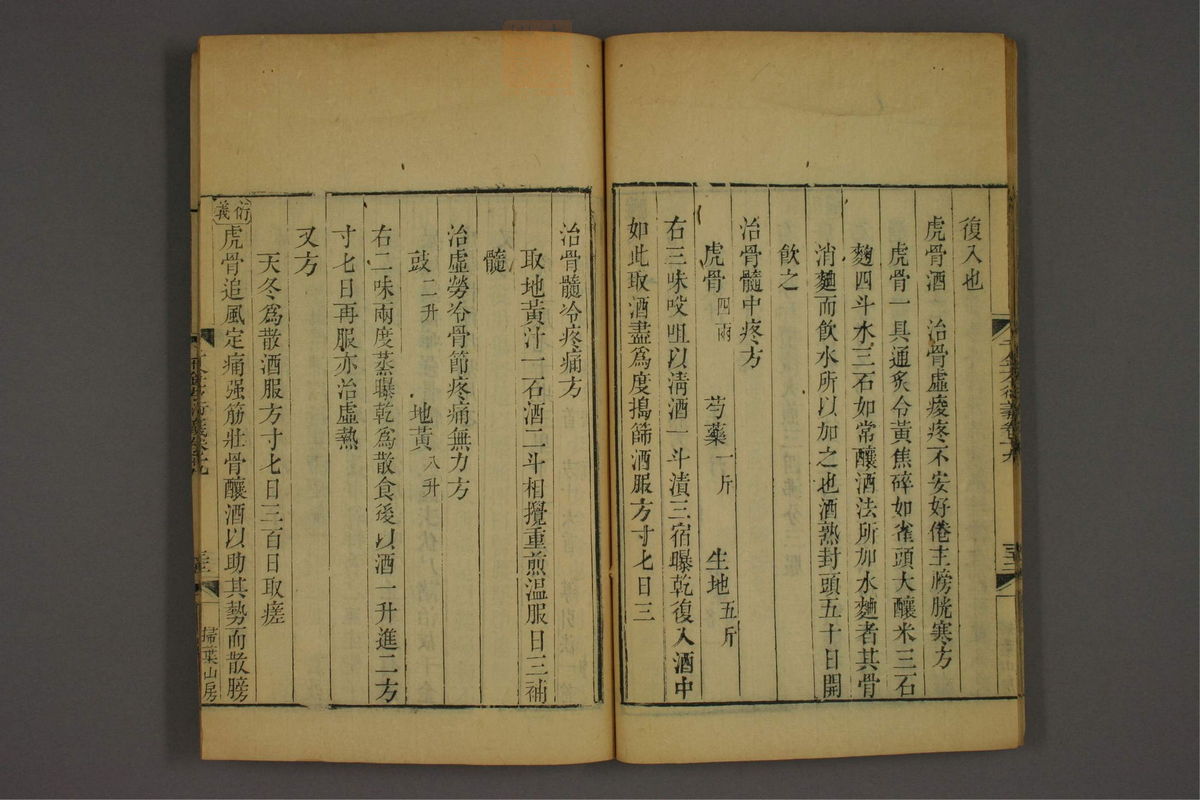 復入也
虎骨酒 治骨虛痠疼不安好倦主膀胱寒方
虎骨一具通炙令黃焦碎如雀頭大釀米三石
麴四斗水三石如常釀酒法所加水麴者其骨
消麴而飲水所以加之也酒熟封頭五十日開
飲之
治骨髓中疼方
虎骨四兩 芍藥一斤 生地五斤
右三味㕮咀以清酒一斗漬三宿曝乾復入酒中
如此取酒盡為度搗篩酒服方寸七日三
治骨髓冷疼痛方
取地黃汁一石酒二斗相攪重煎溫服日三補
髓
治虛勞冷骨節疼痛無力方
豉二升 地黃八升
右二味兩度蒸曝乾為散食後以酒一升進二方
寸七日再服亦治虛熱
又方
天冬為散酒服方寸七日三百日取瘥
衍義
虎骨追風定痛强筋壯骨釀酒以助其勢而散膀
掃葉山房